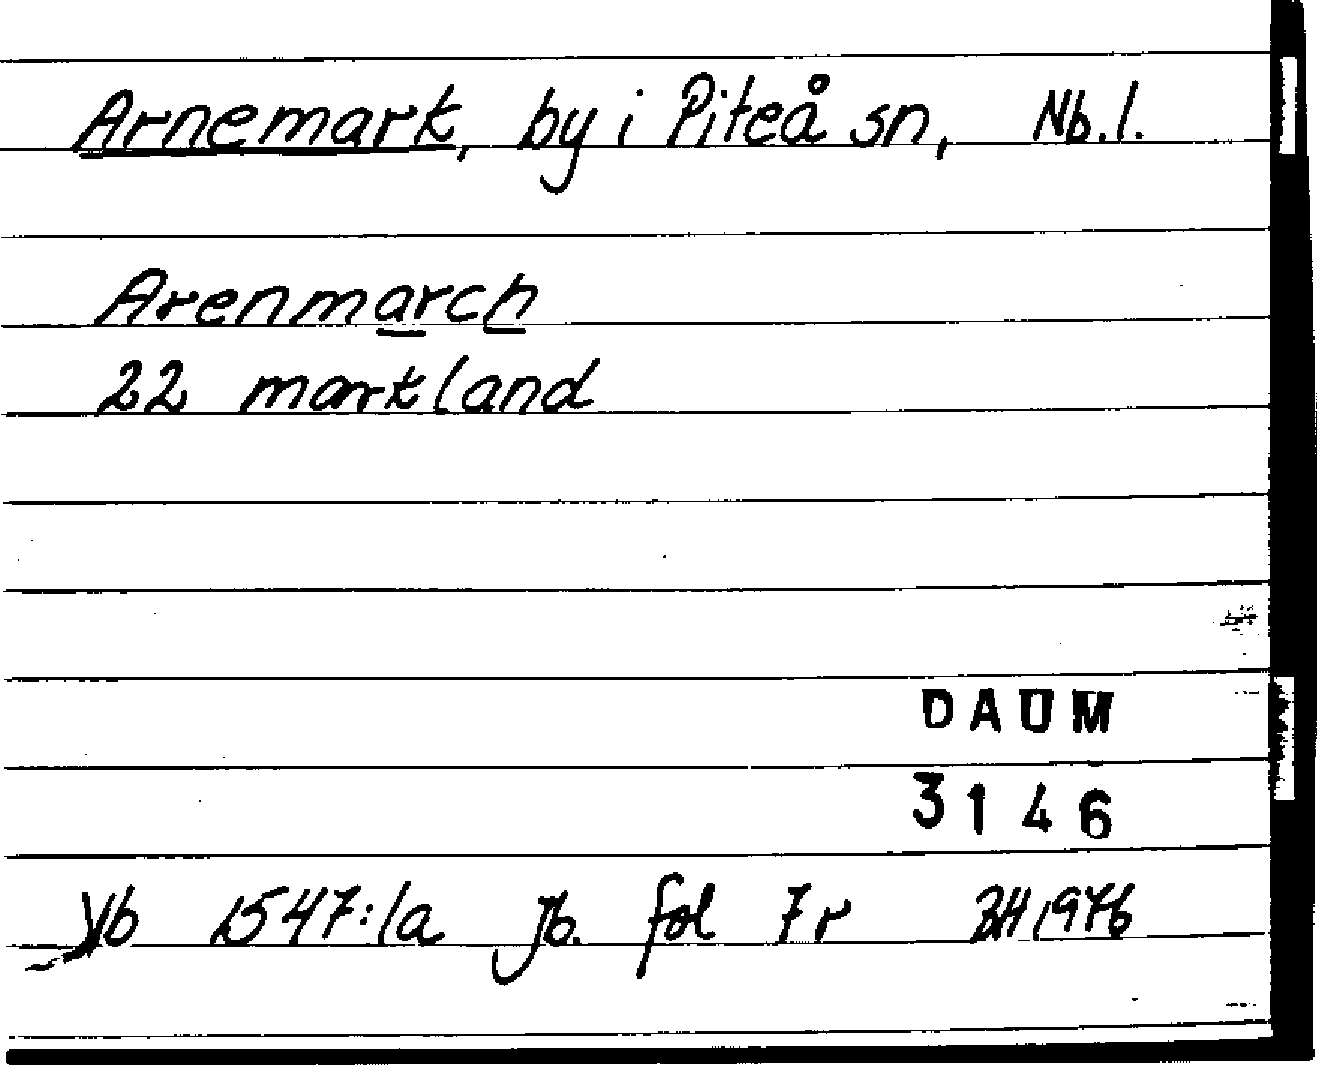 Arnemark, by i Piteå sn, Nb.l.
Arenmarch
22 markland
DAUM
3146
Vb 1547:1a jb. fol 7r BH 1976